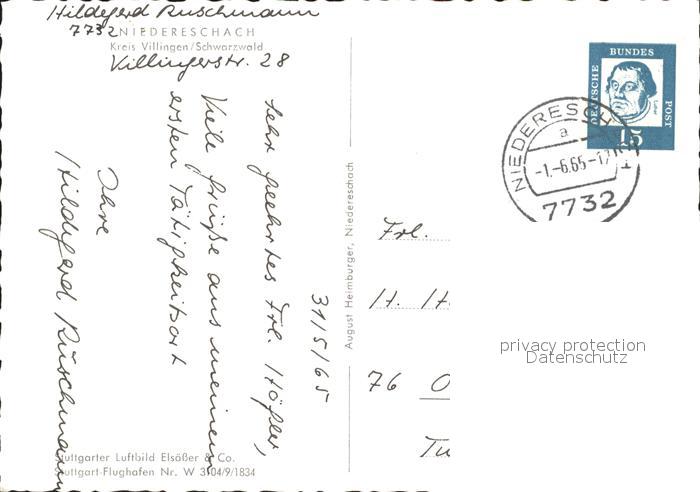 Hildegard Ruschmann
7732 NIEDERESCHACH
Kreis Villingen/Schwarzwald
Villingerstr. 28
31/5/65
Sehr geehrtes Frl. Höfler,
Viele Grüße aus meinem
ersten Tätigkeitsort
Ihre
Hildegard Ruschmann
Stuttgarter Luftbild Elsäßer & Co.
Stuttgart-Flughafen Nr. W 3104/9/1834
August Heimburger, Niedereschach
DEUTSCHE BUNDES POST
Luther
15
NIEDERESCH
a
-1.-6.65-17
7732
Frl.
H. H.
76 O
Tu
privacy protection
Datenschutz